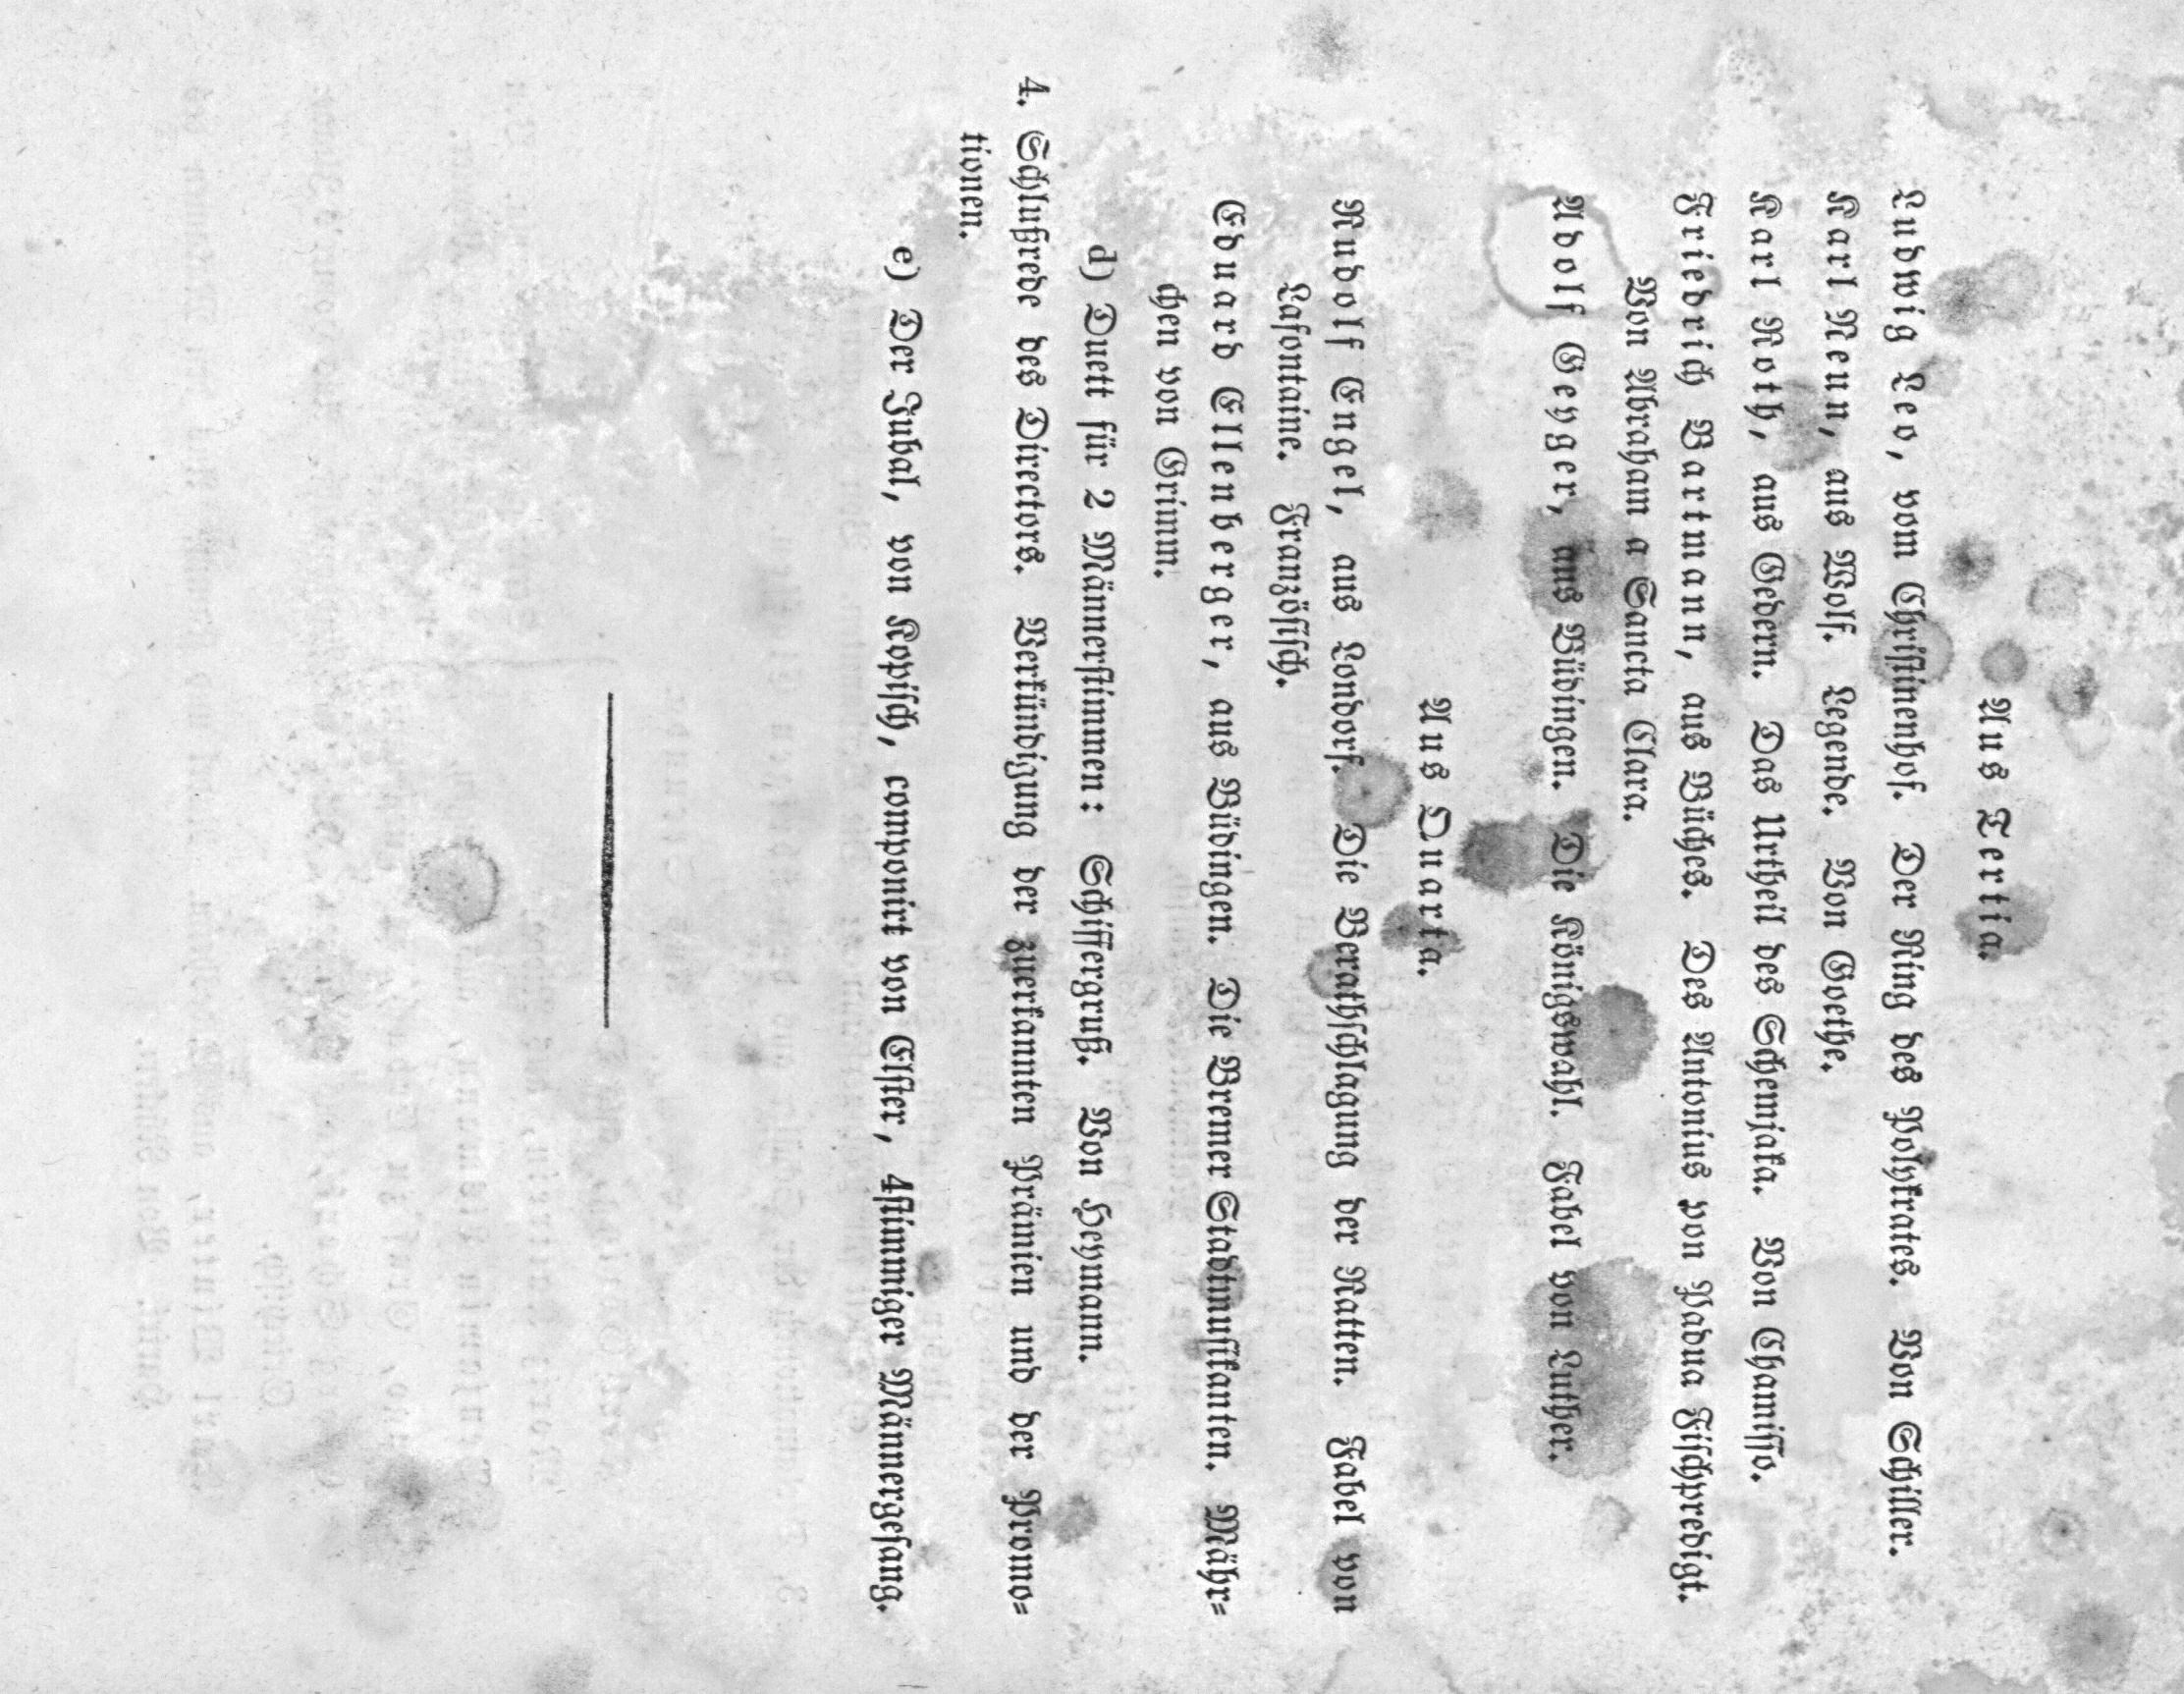 Aus Tertia.
Ludwig Leo, vom Christinenhof. Der Ring des Polykrates. Von Schiller.
Karl Neun, aus Wolf. Legende. Von Goethe.
Karl Roth, aus Gedern. Das Urtheil des Schemjaka. Von Chamisso.
Friedrich Bartmann, aus Büches. Des Antonius von Padua Fischpredigt.
Von Abraham a Sancta Clara.
Adolf Geyger, aus Büdingen. Die Königswahl. Fabel von Luther.
Aus Quarta.
Rudolf Engel, aus Londorf. Die Berathschlagung der Ratten. Fabel von
Lafontaine. Französisch.
Eduard Ellenberger, aus Büdingen. Die Bremer Stadtmusikanten. Mähr=
chen von Grimm.
d) Duett für 2 Männerstimmen: Schiffergruß. Von Heymann.
4. Schlußrede des Directors. Verkündigung der zuerkannten Prämien und der Promo=
tionen.
e) Der Jubal, von Kopisch, componirt von Elster, 4stimmiger Männergesang.